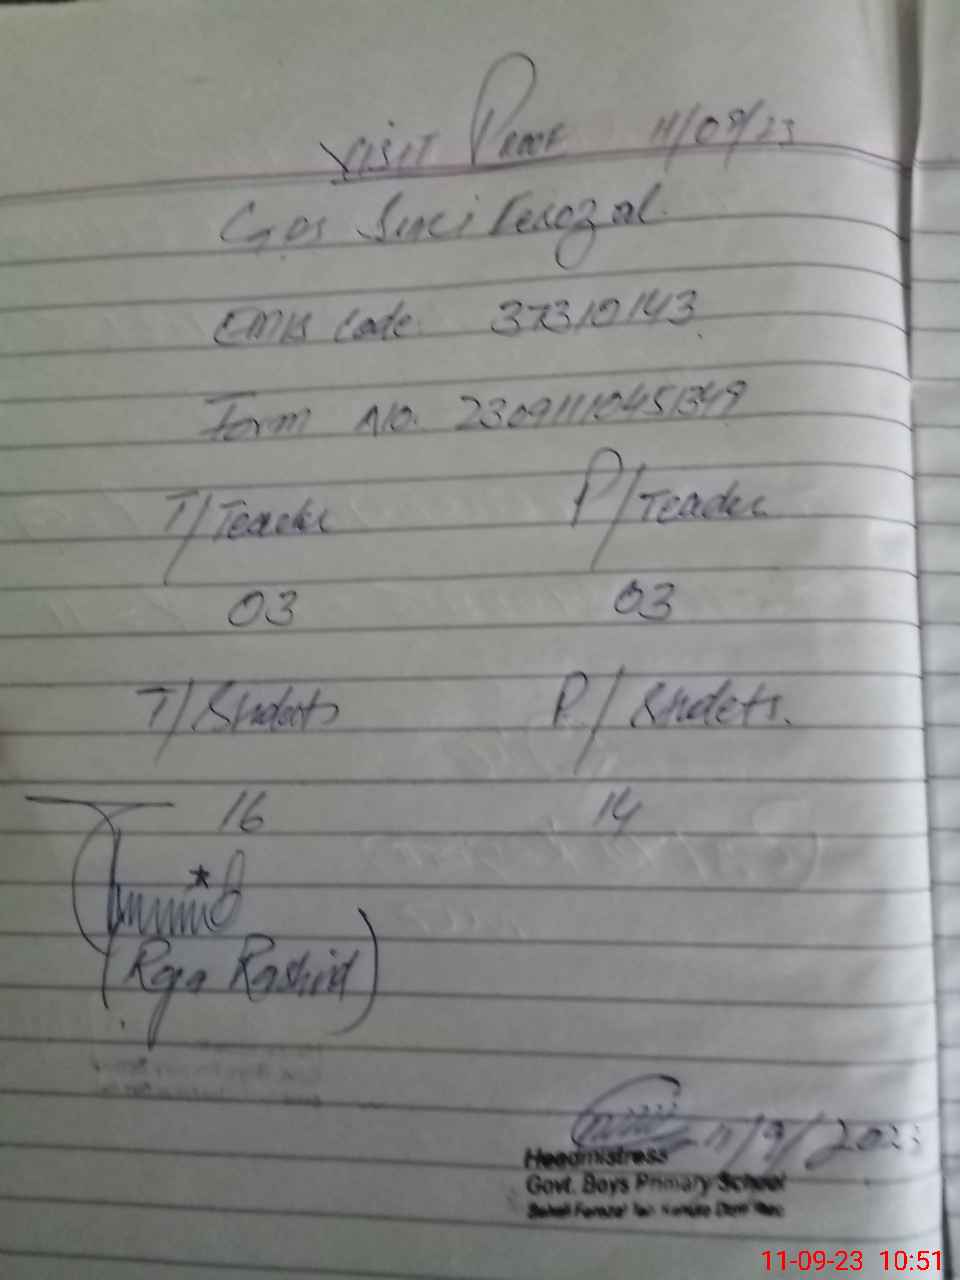 Visit Proof 11/09/23
GPS
EMIS Code 37310143
Form No. 23091110451349
T/Teacher P/Teacher
03 03
T/Students P/Students.
16 14
(Raja Rashid)
11/9/2023
Headmistress
Govt. Boys Primary School
11-09-23 10:51